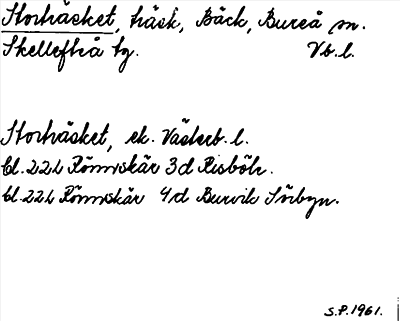 Storträsket, träsk, Bäck, Bureå sn.
Skellefteå tg. Vb.l.
Storträsket, ek. Västerb. l.
bl. 222 Rönnskär 3d Risböle.
bl. 222 Rönnskär 4d Burvik Sörbyn.
S.P. 1961.